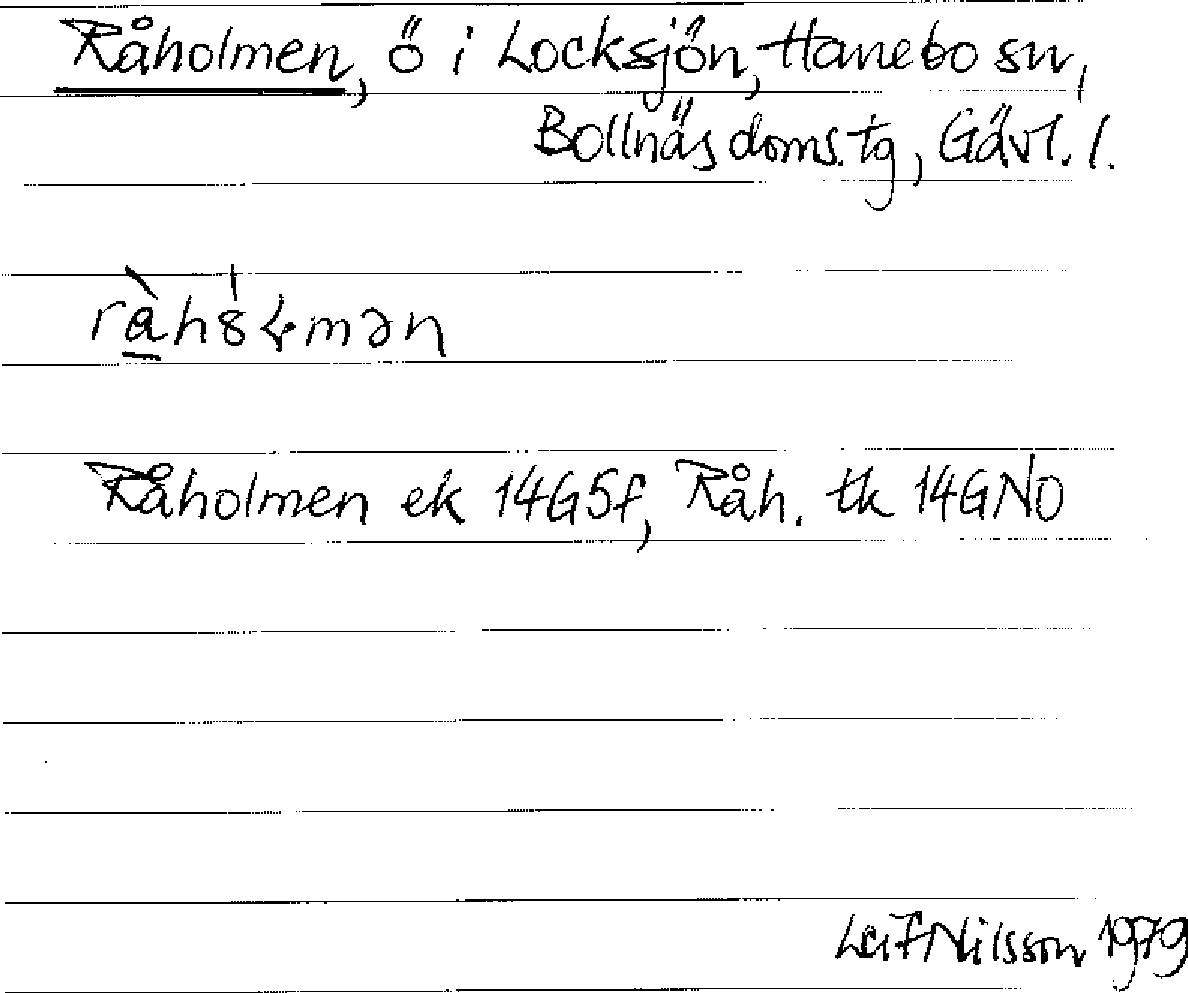 Råholmen, ö i Locksjön, Hanebo sn,
Bollnäs doms.tg, Gävl. l.
Råholmen ek 14G5f, Råh. tk 14GNO
Leif Nilsson 1979